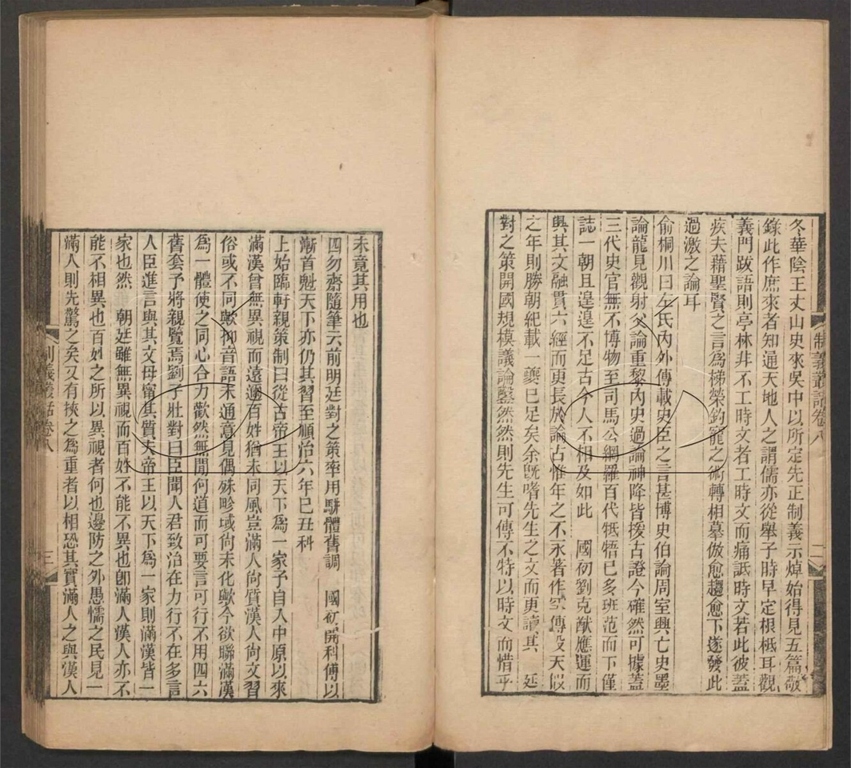 制義叢話卷八
二
冬華陰王丈山史來吳中以所定先正制義示焯始得見五篇敬
錄此作庶來者知通天地人之謂儒亦從舉子時早定根柢耳觀
義門跋語則亭林非不工時文者工時文而痛詆時文若此彼蓋
疾夫藉聖賢之言為梯榮釣寵之術轉相摹倣愈趨愈下遂發此
過激之論耳
俞桐川曰左氏內外傳載史臣之言甚博史伯論周室興亡史墨
論龍見觀射父論重黎內史過論神降皆援古證今確然可據蓋
三代史官無不博物至司馬公網羅百代牴牾已多班范而下僅
誌一朝且遑遑不足古今人不相及如此　國初劉克猷應運而
興其文融貫六經而更長於論古惟年之不永著作罕傳設天假
之年則勝朝紀載一夔已足矣余既嗜先生之文而更讀其　廷
對之策開國規模議論鑿然然則先生可傳不特以時文而惜乎
未竟其用也
四勿齋隨筆云前明廷對之策率用駢體舊調　國初開科傅以
漸首魁天下亦仍其習至順治六年己丑科
上始臨軒親策制曰從古帝王以天下為一家予自入中原以來
滿漢曾無異視而遠邇百姓猶未同風豈滿人尙質漢人尙文習
俗或不同歟抑音語未通意見偶殊畛域尙未化歟今欲聯滿漢
為一體使之同心合力歡然無閒何道而可要言可行不用四六
舊套予將親覽焉劉子壯對曰臣聞人君致治在力行不在多言
人臣進言與其文毋甯其質夫帝王以天下為一家則滿漢皆一
家也然　朝廷雖無異視而百姓不能不異也卽滿人漢人亦不
能不相異也百姓之所以異視者何也邊防之外愚懦之民見一
滿人則先驚之矣又有挾之為重者以相恐其實滿人之與漢人
制義叢話卷八
三